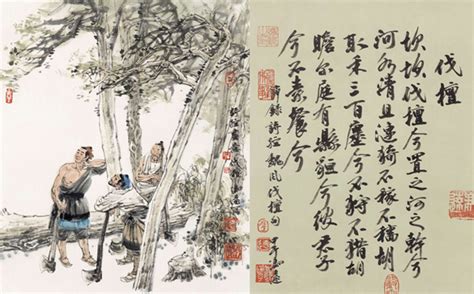 伐檀
坎坎伐檀兮置之河之幹兮
河水清且漣猗不稼不穡胡
取禾三百廛兮不狩不猎胡
瞻尔庭有懸貆兮彼君子
兮不素餐兮
節錄詩經魏風伐檀句